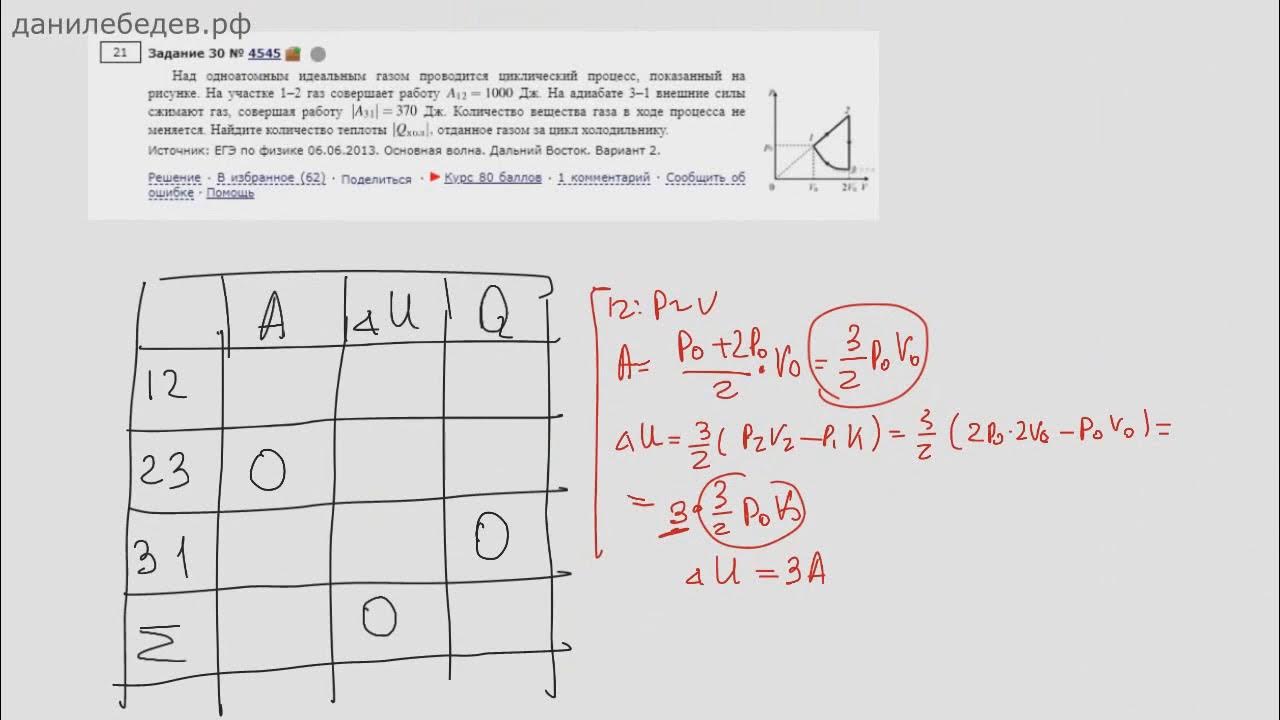 данилебедев.рф
21 Задание 30 № 4545
Над одноатомным идеальным газом проводится циклический процесс, показанный на
рисунке. На участке 1–2 газ совершает работу A₁₂ = 1000 Дж. На адиабате 3–1 внешние силы
сжимают газ, совершая работу |A₃₁| = 370 Дж. Количество вещества газа в ходе процесса не
меняется. Найдите количество теплоты |Qхол|, отданное газом за цикл холодильнику.
Источник: ЕГЭ по физике 06.06.2013. Основная волна. Дальний Восток. Вариант 2.
Решение · В избранное (62) · Поделиться · Курс 80 баллов · 1 комментарий · Сообщить об
ошибке · Помощь
p
2
1
p₀
3
0 V₀ 2V₀ V
A ΔU Q
12
23 0
31 0
Σ 0
12: P~V
A = (P₀ + 2P₀)/2 · V₀ = 3/2 P₀V₀
ΔU = 3/2 (P₂V₂ – P₁V₁) = 3/2 (2P₀·2V₀ – P₀V₀) =
= 3 · 3/2 P₀V₀
ΔU = 3A